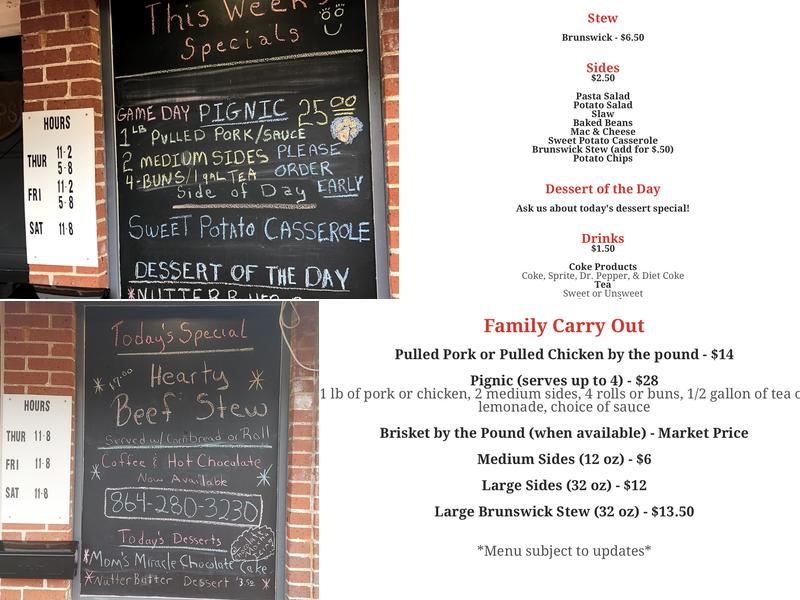 This Week's
Specials
GAME DAY PIGNIC 25⁰⁰
1 LB PULLED PORK/SAUCE
2 MEDIUM SIDES PLEASE
4-BUNS/1 gAL TEA ORDER
EARLY
Side of Day
SWEET PotAto CASSEROLE
DESSERT OF THE DAY
HOURS
THUR 11-2
5-8
FRI 11-2
5-8
SAT 11-8
Stew
Brunswick - $6.50
Sides
$2.50
Pasta Salad
Potato Salad
Slaw
Baked Beans
Mac & Cheese
Sweet Potato Casserole
Brunswick Stew (add for $.50)
Potato Chips
Dessert of the Day
Ask us about today's dessert special!
Drinks
$1.50
Coke Products
Coke, Sprite, Dr. Pepper, & Diet Coke
Tea
Sweet or Unsweet
Today's Special
Hearty
Beef Stew
Served w/ Cornbread or Roll
Coffee & Hot Chocolate
Now Available
864-280-3230
Today's Desserts
*Mom's Miracle Chocolate Cake
*Nutter Butter Dessert $3.50
HOURS
THUR 11-8
FRI 11-8
SAT 11-8
Family Carry Out
Pulled Pork or Pulled Chicken by the pound - $14
Pignic (serves up to 4) - $28
1 lb of pork or chicken, 2 medium sides, 4 rolls or buns, 1/2 gallon of tea o
lemonade, choice of sauce
Brisket by the Pound (when available) - Market Price
Medium Sides (12 oz) - $6
Large Sides (32 oz) - $12
Large Brunswick Stew (32 oz) - $13.50
*Menu subject to updates*